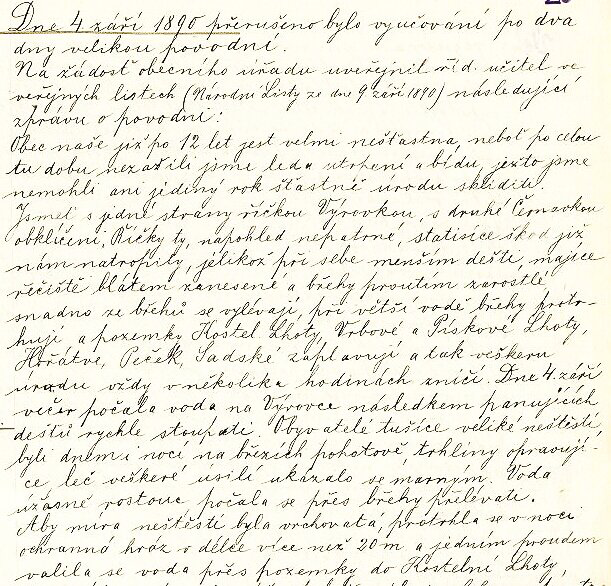 Dne 4 září 1890 přerušeno bylo vyučování po dva
dny velikou povodní.
Na žádost obecního úřadu uveřejnil říd. učitel ve
veřejných listech (Národní Listy ze dne 9 září 1890) následující
zprávu o povodni:
Obec naše již po 12 let jest velmi nešťastna, neboť po celou
tu dobu nezažili jsme leda utrpení a bídu, ježto jsme
nemohli ani jediný rok šťastně úrodu skliditi.
Jsmeť s jedné strany říčkou Výrovkou, s druhé Černavkou
obklíčeni. Říčky ty, napohled nepatrné, statisíce škod již
nám natropily, jelikož při sebe menším dešti, majíce
řečiště blátem zanesené a břehy proutím zarostlé
snadno ze břehů se vylévají, při větší vodě břehy protr-
hují a pozemky Kostel. Lhoty, Vrbové a Pískové Lhoty,
Hořátve, Peček, Sadské zaplavují a tak veškeru
úrodu vždy v několika hodinách zničí. Dne 4. září
večer počala voda na Výrovce následkem panujících
dešťů rychle stoupati. Obyvatelé tušíce veliké neštěstí,
byli dnem i nocí na březích pohotově, trhliny opravují-
ce, leč veškeré úsilí ukázalo se marným. Voda
úžasně rostouc počala se přes břehy přelévati.
Aby míra neštěstí byla vrchovata, protrhla se v noci
ochranná hráz o délce více než 20 m a jedním proudem
valila se voda přes pozemky do Kostelní Lhoty,